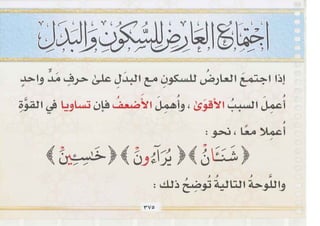 اجْتِمَاعُ العَارِضِ لِلسُّكُونِ وَالبَدَلِ
إذا اجتمعَ العارضُ للسكونِ مع البدَلِ علىٰ حرفِ مَدٍّ واحدٍ
أُعمِلَ السببُ الأقوَىٰ ، وأُهمِلَ الأَضعفُ فإن تساويا في القوَّةِ
أُعمِلا معًا ، نحو :
﴿ شَنَـَٔانُ ﴾ ﴿ يُرَآءُونَ ﴾ ﴿ خَـٰسِـِٔينَ ﴾
واللَّوحةُ التاليةُ تُوضِحُ ذلك :
٣٧٥